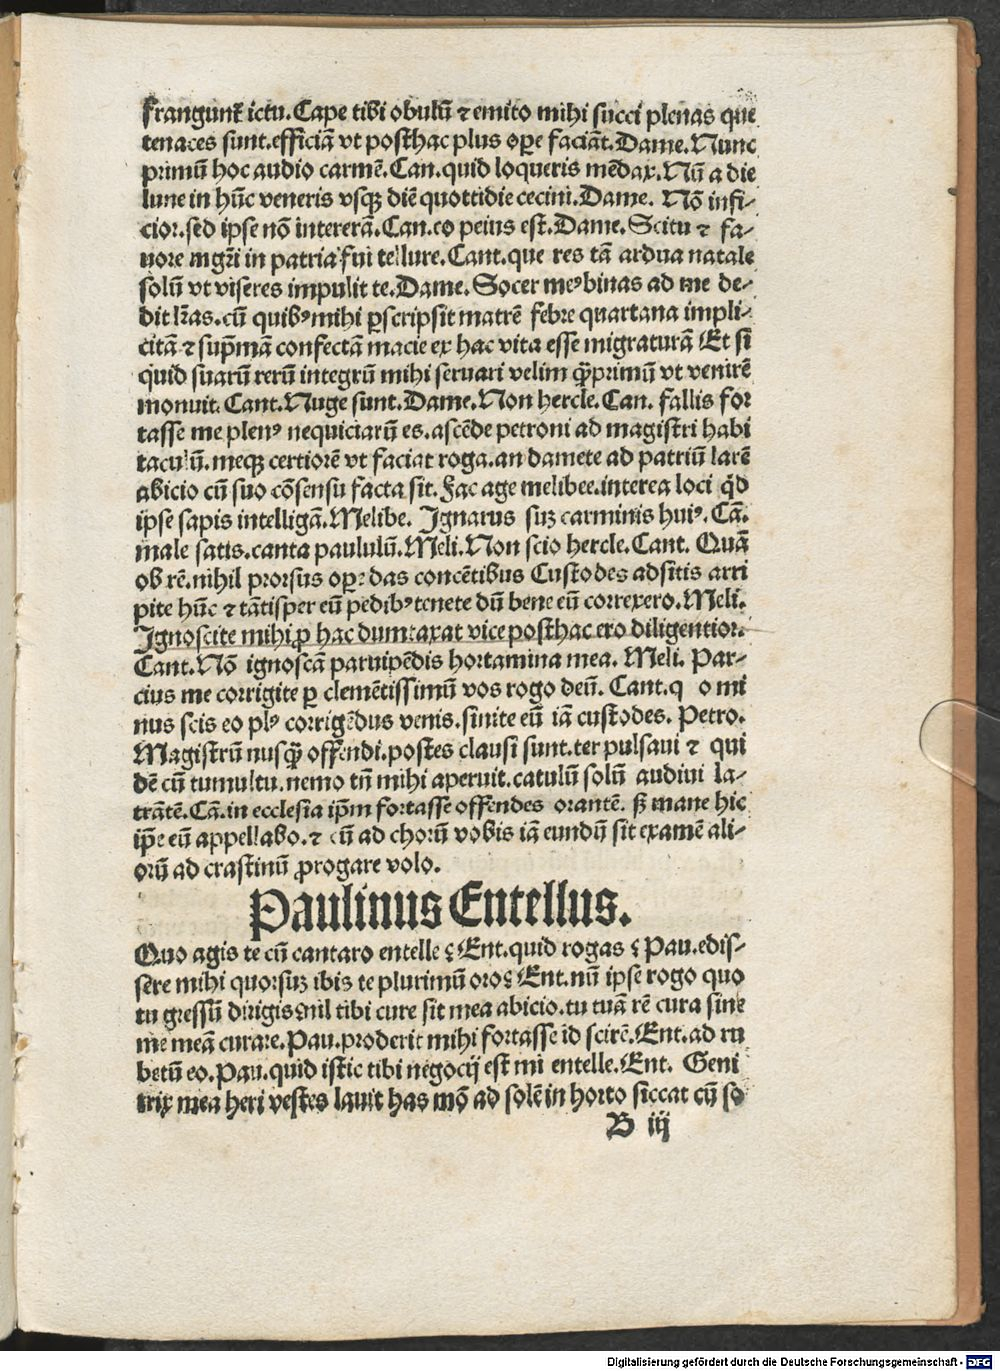 frangunt᷑ ictu. Cape tibi obulū ⁊ emito mihi succi plenas que
tenaces sunt. efficiā vt posthac plus oꝑe faciāt. Dame. Nunc
primū hoc audio carmē. Can. quid loqueris mēdax. Nū a die
lune in hūc veneris vsqꝫ diē quottidie cecini. Dame. Nō infi-
cior. sed ipse nō intererā. Can. eo peius est. Dame. Scitu ⁊ fa-
uore mgr̄i in patria fui tellure. Cant. que res tā ardua natale
solū vt viseres impulit te. Dame. Socer meꝰ binas ad me de-
dit lr̄as. cū quibꝰ mihi ꝑscripsit matrē febre quartana impli-
citā ⁊ sup̄mā confectā macie ex hac vita esse migraturā Et si
quid suarū rerū integrū mihi seruari velim q̄ꝫprimū vt venirē
monuit. Cant. Nuge sunt. Dame. Non hercle. Can. fallis for
tasse me plenꝰ nequiciarū es. ascēde petroni ad magistri habi
taculū. meqꝫ certiorē vt faciat roga. an damete ad patriū larē
abicio cū suo cōsensu facta sit. Fac age melibee. interea loci q̄d
ipse sapis intelligā. Melibe. Ignarus suꝫ carminis huiꝰ. Cā.
male satis. canta paululū. Meli. Non scio hercle. Cant. Quā
ob rē. nihil prorsus oꝑe das concētibus Custodes adsitis arri
pite hūc ⁊ tātisper eū pedibꝰ tenete dū bene eū correxero. Meli.
Ignoscite mihi ꝓ hac dumtaxat vice posthac ero diligentior.
Cant. Nō ignoscā paruipēdis hortamina mea. Meli. Par-
cius me corrigite ꝑ clemētissimū vos rogo deū. Cant. q o mi
nus scis eo plꝰ corrigēdus venis. sinite eū iā custodes. Petro.
Magistrū nusqꝫ̄ offendi. postes clausi sunt. ter pulsaui ⁊ qui
dē cū tumultu. nemo tn̄ mihi aperuit. catulū solū audiui la-
trātē. Cā. in ecclesia ip̄m fortasse offendes orantē. sꝫ mane hic
ip̄e eū appellabo. ⁊ cū ad chorū vobis iā eundū sit examē ali-
orū ad crastinū ꝓrogare volo.
Paulinus Entellus.
Quo agis te cū cantaro entelle? Ent. quid rogas? Pau. edis-
sere mihi quorsuꝫ ibis te plurimū oro? Ent. nū ipse rogo quo
tu gressū dirigis? nil tibi cure sit mea abicio. tu tuā rē cura sine
me meā curare. Pau. proderit mihi fortasse id scirē. Ent. ad ru
betū eo. Pau. quid istic tibi negocij est mi entelle. Ent. Geni
trix mea heri vestes lauit has mō ad solē in horto siccat cū so
B iij
Digitalisierung gefördert durch die Deutsche Forschungsgemeinschaft - DFG